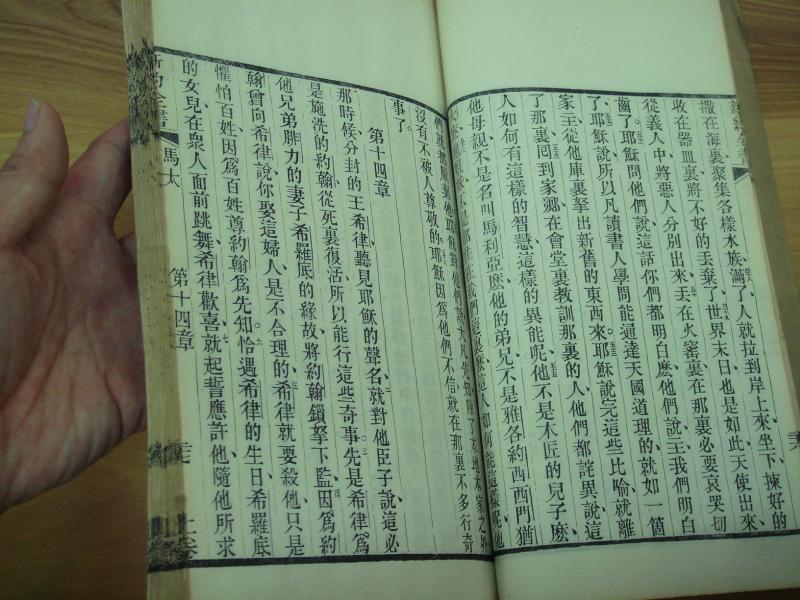 撒在海裏聚集各樣水族、滿了、人就拉到岸上來、坐下、揀好的
收在器皿裏、將不好的丟棄了、世界末日、也是如此、天使出來、
從義人中、將惡人分別出來、丟在火窰裏、在那裏必要哀哭切
齒了。耶穌問他們說、這話你們都明白麽、他們說、主、我們明白
了。耶穌說、所以凡讀書人學問能通達天國道理的、就如一個
家主、從他庫裏拏出新舊的東西來。耶穌說完這些比喻、就離
了那裏、囘到家鄉、在會堂裏教訓那裏的人、他們都詫異、說、這
人如何有這樣的智慧、這樣的異能呢、他不是木匠的兒子麽、
他母親不是名叫馬利亞麽、他的弟兄不是雅各約西西門猶
沒有不被人尊敬的。耶穌因爲他們不信、就在那裏不多行奇
事了。
第十四章
那時候、分封的王希律、聽見耶穌的聲名、就對他臣子說、這必
是施洗的約翰從死裏復活、所以能行這些奇事。先是希律、爲
他兄弟腓力的妻子希羅底的緣故、將約翰鎖拏下監、因爲約
翰曾向希律說、你娶這婦人、是不合理的。希律就要殺他、只是
懼怕百姓、因爲百姓尊約翰爲先知。恰遇希律的生日、希羅底
的女兒、在衆人面前跳舞、希律歡喜、就起誓應許他、隨他所求
馬太
第十四章
上卷